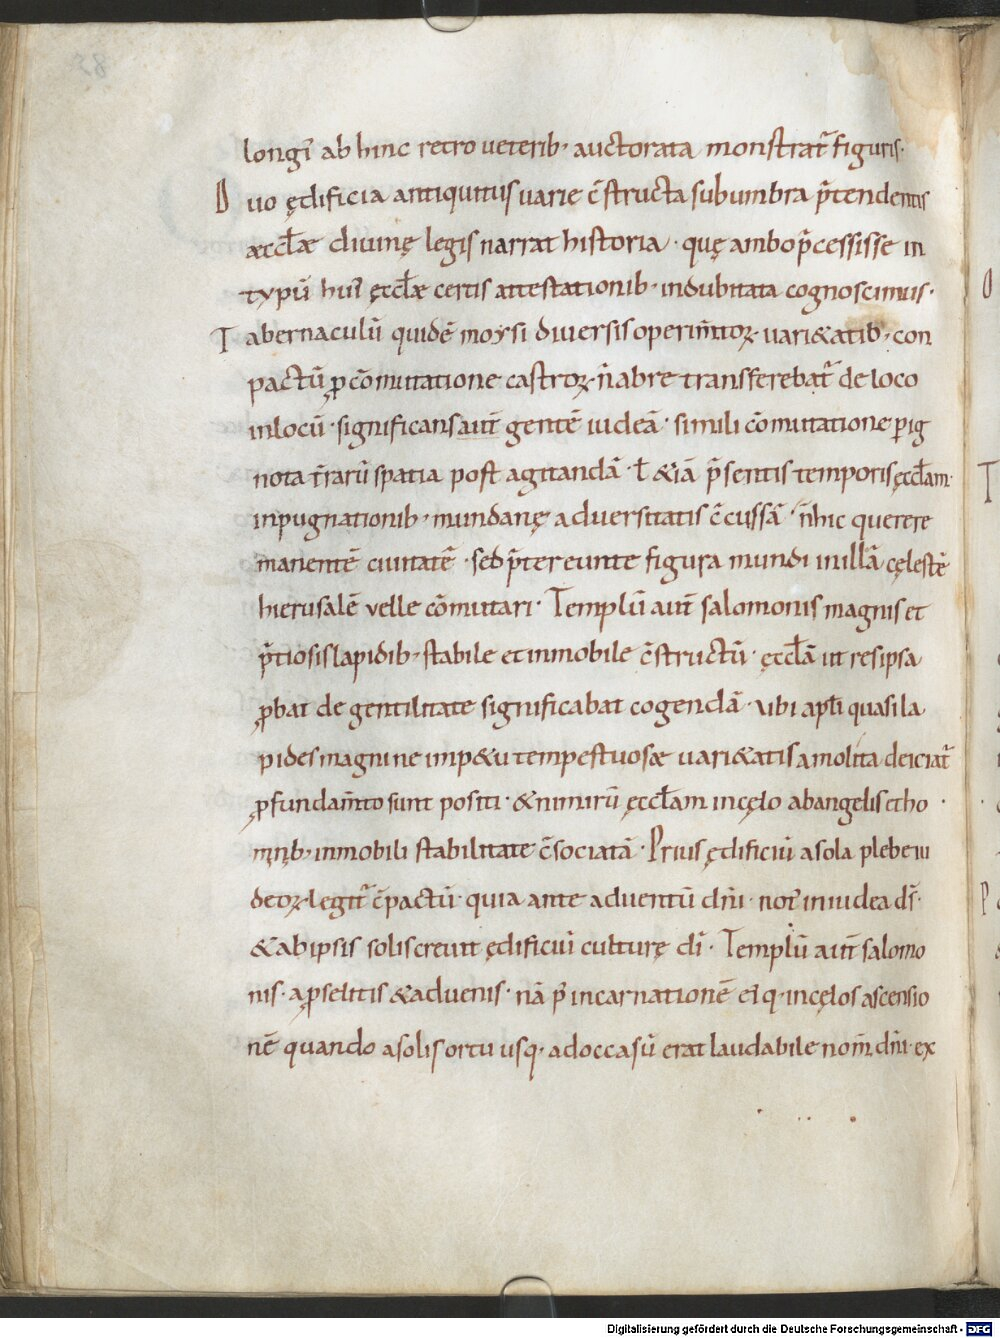 longi᷑ ab hinc retro ueterib; auctorata monstrat᷑ figuris·
Duo ędificia antiquitus uarie c̄structa sub umbra p̄tendentis
æccl̄æ diuinę legis narrat historia · quę ambo p̄cessisse in
typū hui᷑ ęccl̄æ certis attestationib; indubitata cognoscimus·
Tabernaculū quidē moysi diuersis operim̄toꝝ uari&atib; con
pactū ꝓ cōmutatione castroꝝ n̄ ab re transferebat᷑ de loco
in locū · significans aut̄ gentē iudeā · simili cōmutatione ꝑ ig
nota t̄rarū spatia post agitandā · ł &iā p̄sentis temporis ęccl̄am·
inpugnationib; mundanę aduersitatis c̄cussā · n̄ hic querere
manentē ciuitatē · sed p̄tereunte figura mundi in illā cęlestē
hierusalē velle cōmutari · Templū aut̄ salomonis magnis et
p̄tiosis lapidib; stabile et inmobile c̄structū · ęccl̄ā ut res ipsa
ꝓbat de gentilitate significabat cogendā · ubi apl̄i quasi la
pides magni ne imp&u tempestuosæ uari&atis a molita deiciat᷑
ꝓfundam̄to sunt positi · & nimirū ęccl̄am in cęlo ab angelis et ho ·
minib; inmobili stabilitate c̄sociatā · Prius ędificiū a sola plebe iu
deoꝝ legit᷑ c̄pactū · quia ante aduentū dn̄i · not᷑ in iudea ds̄·
& ab ipsis solis creuit ędificiū culturę dī · Templū aut̄ salomo
nis · a ꝓselitis & aduenis · nā p᷑ incarnationē ei᷑ q; in cęlos ascensio
nē quando a solis ortu usq; ad occasū erat laudabile nom̄ dn̄i · ex
Digitalisierung gefördert durch die Deutsche Forschungsgemeinschaft - DFG